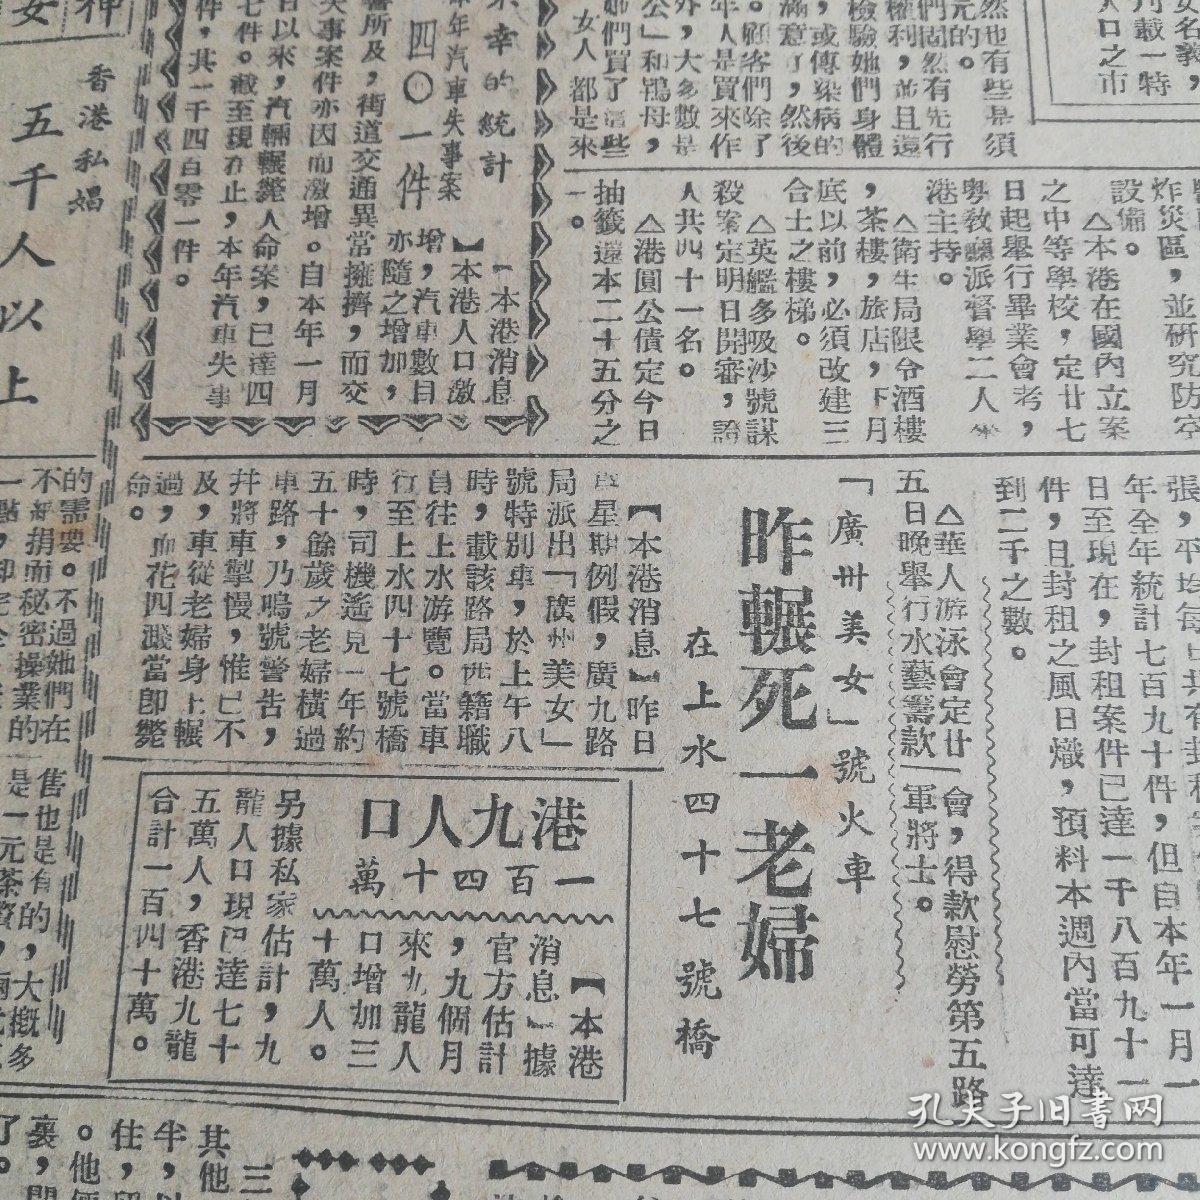 史名義，
刊載一特
人口之市
然也有些是須
元的。
們固然有先行
權利，並且還
檢驗她們身體
，或傳染病的
滿意了，然後
。顧客們除了
年人是買來作
外，大多數是
公」和鴇母，
她們買了這些
女人都是來
炸災區，並研究防空
設備。
△本港在國內立案
之中等學校，定廿七
日起舉行畢業會考，
粵教廳派督學二人來
港主持。
△衛生局限令酒樓
，茶樓，旅店，下月
底以前，必須改建三
合土之樓梯。
△英艦多吸沙號謀
殺案定明日開審，證
人共四十一名。
△港圓公債定今日
抽籤還本二十五分之
一。
不幸的統計
本年汽車失事案
四〇一件
【本港消息
】本港人口激
增，汽車數目
亦隨之增加，
響所及，街道交通異常擁擠，而交
失事案件亦因而激增。自本年一月
日以來，汽輛輾斃人命案，已達四
七件。截至現在止，本年汽車失事
件，其一千四百零一件。
香港私娼
五千人以上
張，平均每日共有封租
年全年統計七百九十件，但自本年一月一
日至現在，封租案件已達一千八百九十一
件，且封租之風日熾，預料本週內當可達
到二千之數。
△華人游泳會定廿一會，得款慰勞第五路
五日晚舉行水藝籌款一軍將士。
「廣州美女」號火車
昨輾死一老婦
在上水四十七號橋
【本港消息】昨日
為星期例假，廣九路
局派出「廣州美女」
號特別車，於上午八
時，載該路局西籍職
員往上水游覽。當車
行至上水四十七號橋
時，司機遙見一年約
五十餘歲之老婦橫過
車路，乃鳴號警告，
幷將車掣慢，惟已不
及，車從老婦身上輾
過，血花四濺當即斃
命。
港九人口
一百四十萬
【本港
消息】據
官方估計
，九個月
來九龍人
口增加三
十萬人。
另據私家估計，九
龍人口現已達七十
五萬人，香港九龍
合計一百四十萬。
的需要。不過她們在
不納捐而秘密操業的
售也是有的，大概多
是一元茶資，
孔夫子旧书网
www.kongfz.com